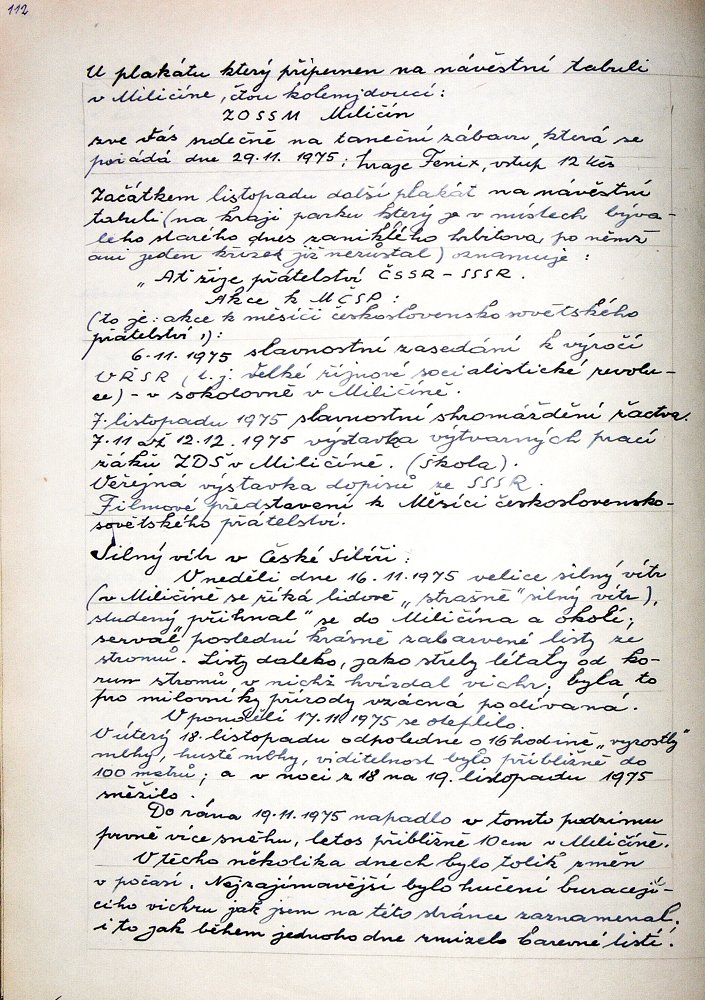 112
U plakátu který připevnen na návěstní tabuli
v Miličíne, čtou kolemjdoucí:
ZOSSM Miličín
zve Vás srdečně na taneční zábavu, která se
pořádá dne 29.11. 1975; hraje Fenix, vstup 12 Kčs
Začátkem listopadu další plakát na návěstní
tabuli (na kraji parku který je v místech býva-
lého starého dnes zaniklého hřbitova, po němž
ani jeden křížek již nezůstal) oznamuje:
"Ať žije přátelství ČSSR - SSSR.
Akce k MČSP:
(to je: akce k měsíci československo sovětského
přátelství:):
6.11. 1975 slavnostní zasedání k výročí
VŘSR (t.j. Velké říjnové socialistické revolu-
ce) - v sokolovně v Miličíně.
7. listopadu 1975 slavnostní shromáždění žactva.
7.11 až 12.12. 1975 výstavka výtvarných prací
žáků ZDŠ v Miličíně. (Škola).
Veřejná výstavka dopisů ze SSSR.
Filmové představení k Měsíci československo-
sovětského přátelství.
Silný vítr v České Sibiři:
V neděli dne 16.11.1975 velice silný vítr
(v Miličíně se říká lidově "strašně" silný vítr),
studený "přihnal" se do Miličína a okolí;
serval poslední krásně zabarvené listy ze
stromů. Listy daleko, jako střely létaly od ko-
run stromů v nichž hvízdal vichr; byla to
pro milovníky přírody vzácná podívaná.
V pondělí 17.11 1975 se oteplilo.
V úterý 18. listopadu odpoledne o 16 hodině "vyrostly"
mlhy, husté mlhy, viditelnost bylo přibližně do
100 metrů; a v noci z 18 na 19. listopadu 1975
sněžilo.
Do rána 19.11.1975 napadlo v tomto podzimu
prvně více sněhu, letos přibližně 10 cm v Miličíně.
V těcho několika dnech bylo tolik změn
v počasí. Nejzajímavější bylo hučení buracejí-
cího vichru jak jsem na této stránce zaznamenal.
i to jak během jednoho dne zmizelo barevné listí.